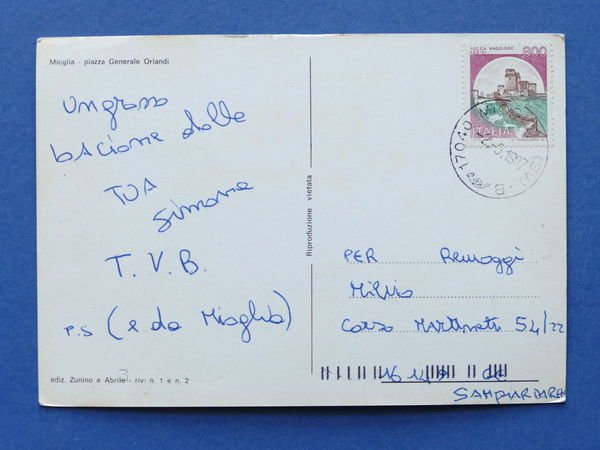 Mioglia - piazza Generale Orlandi
un grosso
bacione dalla
TUA
Simona
T.V.B.
P.S (e da Mioglia)
ediz. Zunino e Abrile - riv: n. 1 e n. 2
Riproduzione vietata
ROCCA MAGGIORE
800
ITALIA
17040
1997
(SV)
B
PER Remoggi
Milvio
Corso Martinetti 54/22
16149 GE
SAMPIERDARENA